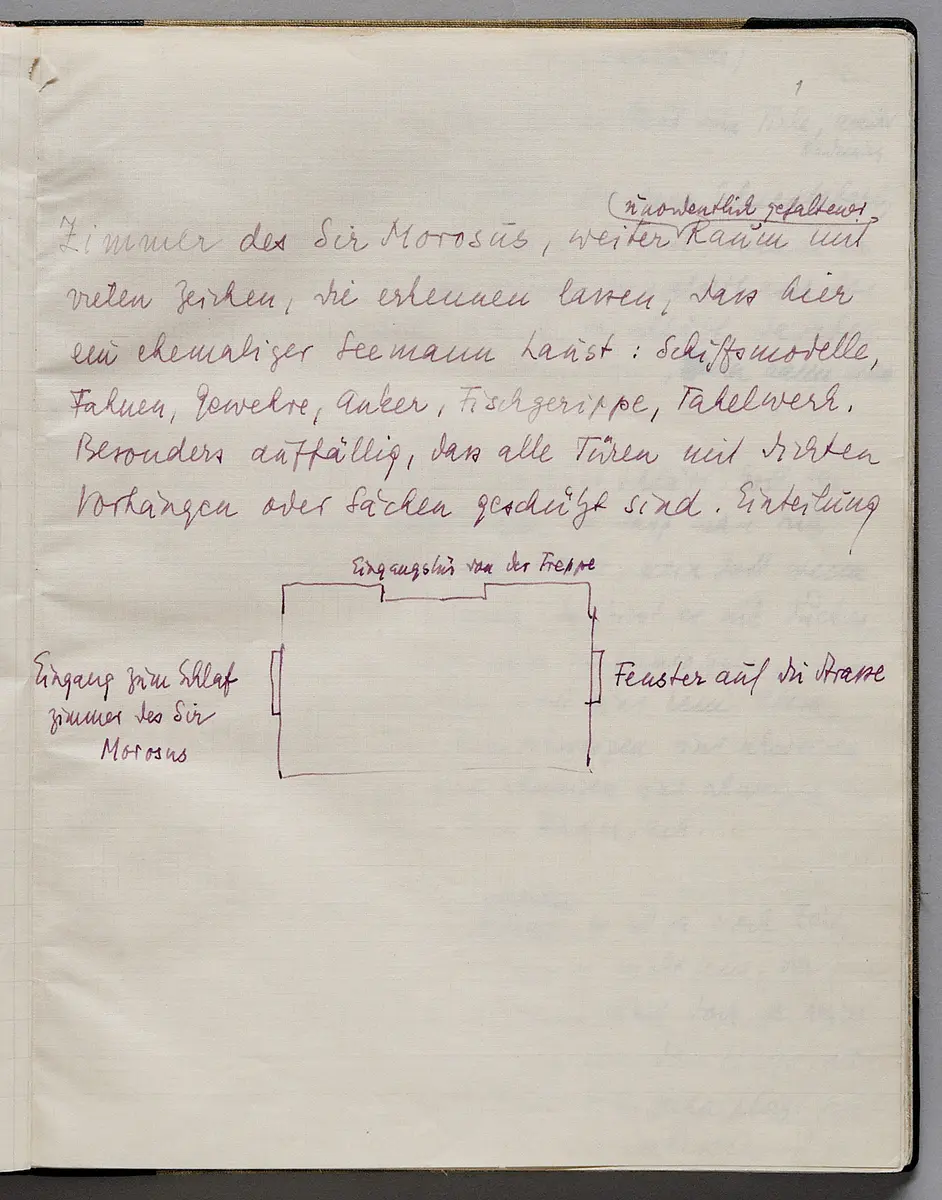 1
(unordentlich gehaltener
Zimmer des Sir Morosus, weiter Raum mit
vielen Zeichen, die erkennen lassen, dass hier
ein ehemaliger Seemann haust: Schiffsmodelle,
Fahnen, Gewehre, Anker, Fischgerippe, Takelwerk.
Besonders auffällig, dass alle Türen mit dichten
Vorhängen oder Säcken geschützt sind. Einteilung
Eingangstür von der Treppe
Eingang zum Schlaf
zimmer des Sir
Morosus
Fenster auf die Strasse